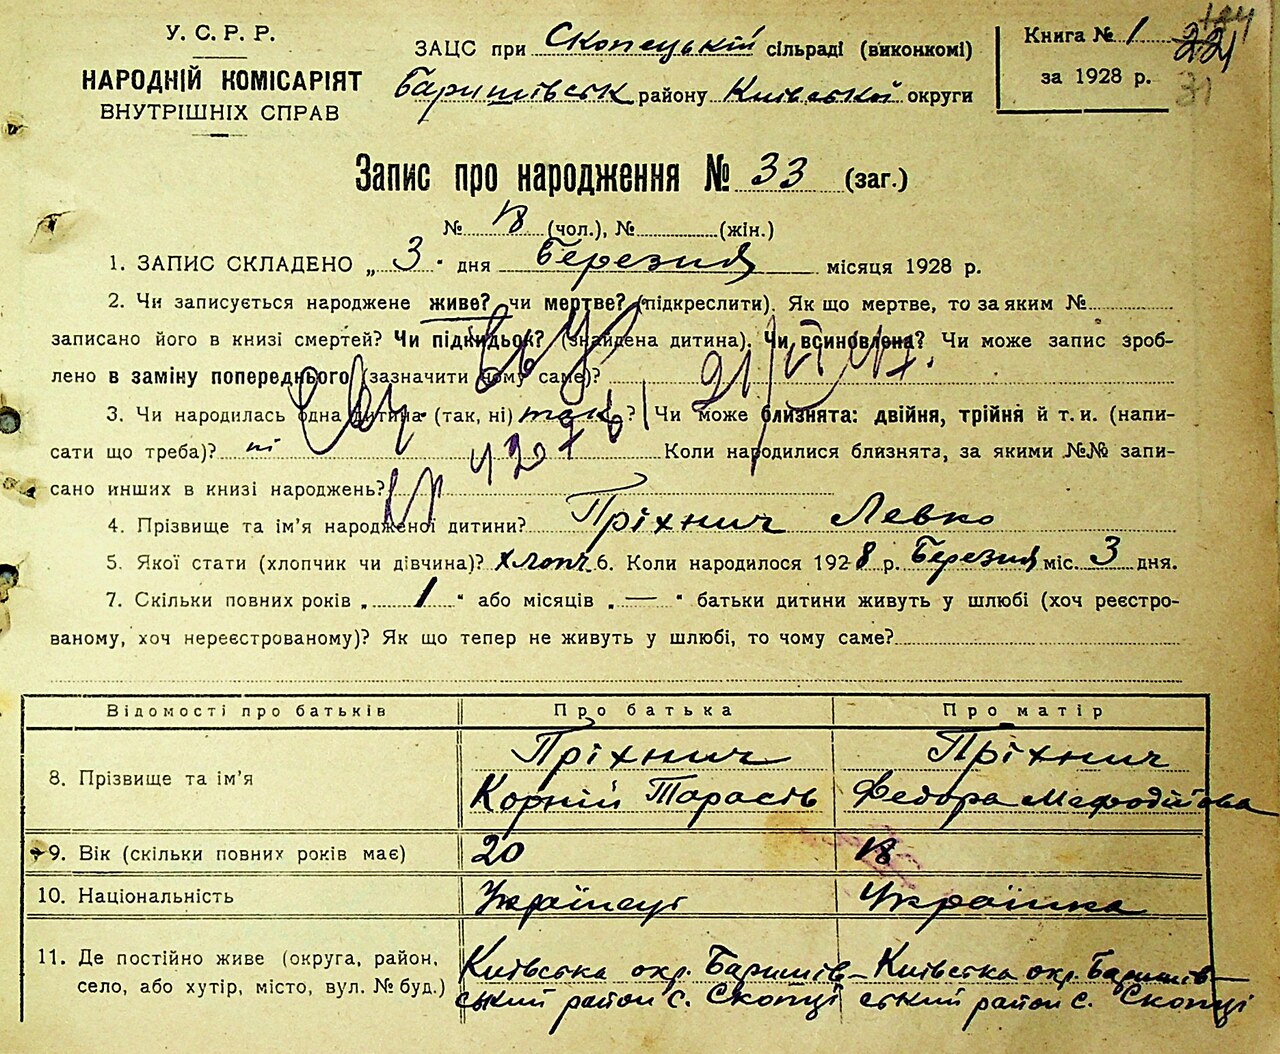 У. С. Р. Р.
НАРОДНІЙ КОМІСАРІЯТ
ВНУТРІШНІХ СПРАВ
ЗАЦС при Скопецькій сільраді (виконкомі)
Баришівськ району Київської округи
Книга № 1
221
за 1928 р. 31
Запис про народження № 33 (заг.)
№ 18 (чол.), № (жін.)
1. ЗАПИС СКЛАДЕНО „ 3 . дня Березня місяця 1928 р.
2. Чи записується народжене живе? чи мертве? (підкреслити). Як що мертве, то за яким №
записано його в книзі смертей? Чи підкидьок? (знайдена дитина). Чи всиновлена? Чи може запис зроб-
лено в заміну попереднього (зазначити чому саме)?
21/VI 47.
3. Чи народилась одна дитина (так, ні) так ? Чи може близнята: двійня, трійня й т. и. (напи-
сати що треба)? ні Коли народилися близнята, за якими №№ запи-
сано инших в книзі народжень?
4. Прізвище та ім'я народженої дитини? Пріхнич Левко
5. Якої стати (хлопчик чи дівчина)? хлопч. 6. Коли народилося 1928 р. Березня міс. 3 дня.
7. Скільки повних років „ 1 “ або місяців „ — “ батьки дитини живуть у шлюбі (хоч реєстро-
ваному, хоч нереєстрованому)? Як що тепер не живуть у шлюбі, то чому саме?
Відомості про батьків Про батька Про матір
8. Прізвище та ім'я
Пріхнич
Корній Тарасів
Пріхнич
Федора Мефодіїова
9. Вік (скільки повних років має) 20 18
10. Національність Українець Українка
11. Де постійно живе (округа, район,
село, або хутір, місто, вул. № буд.)
Київська окр. Баришів-
ський район с. Скопці
Київська окр. Баришів-
ський район с. Скопці